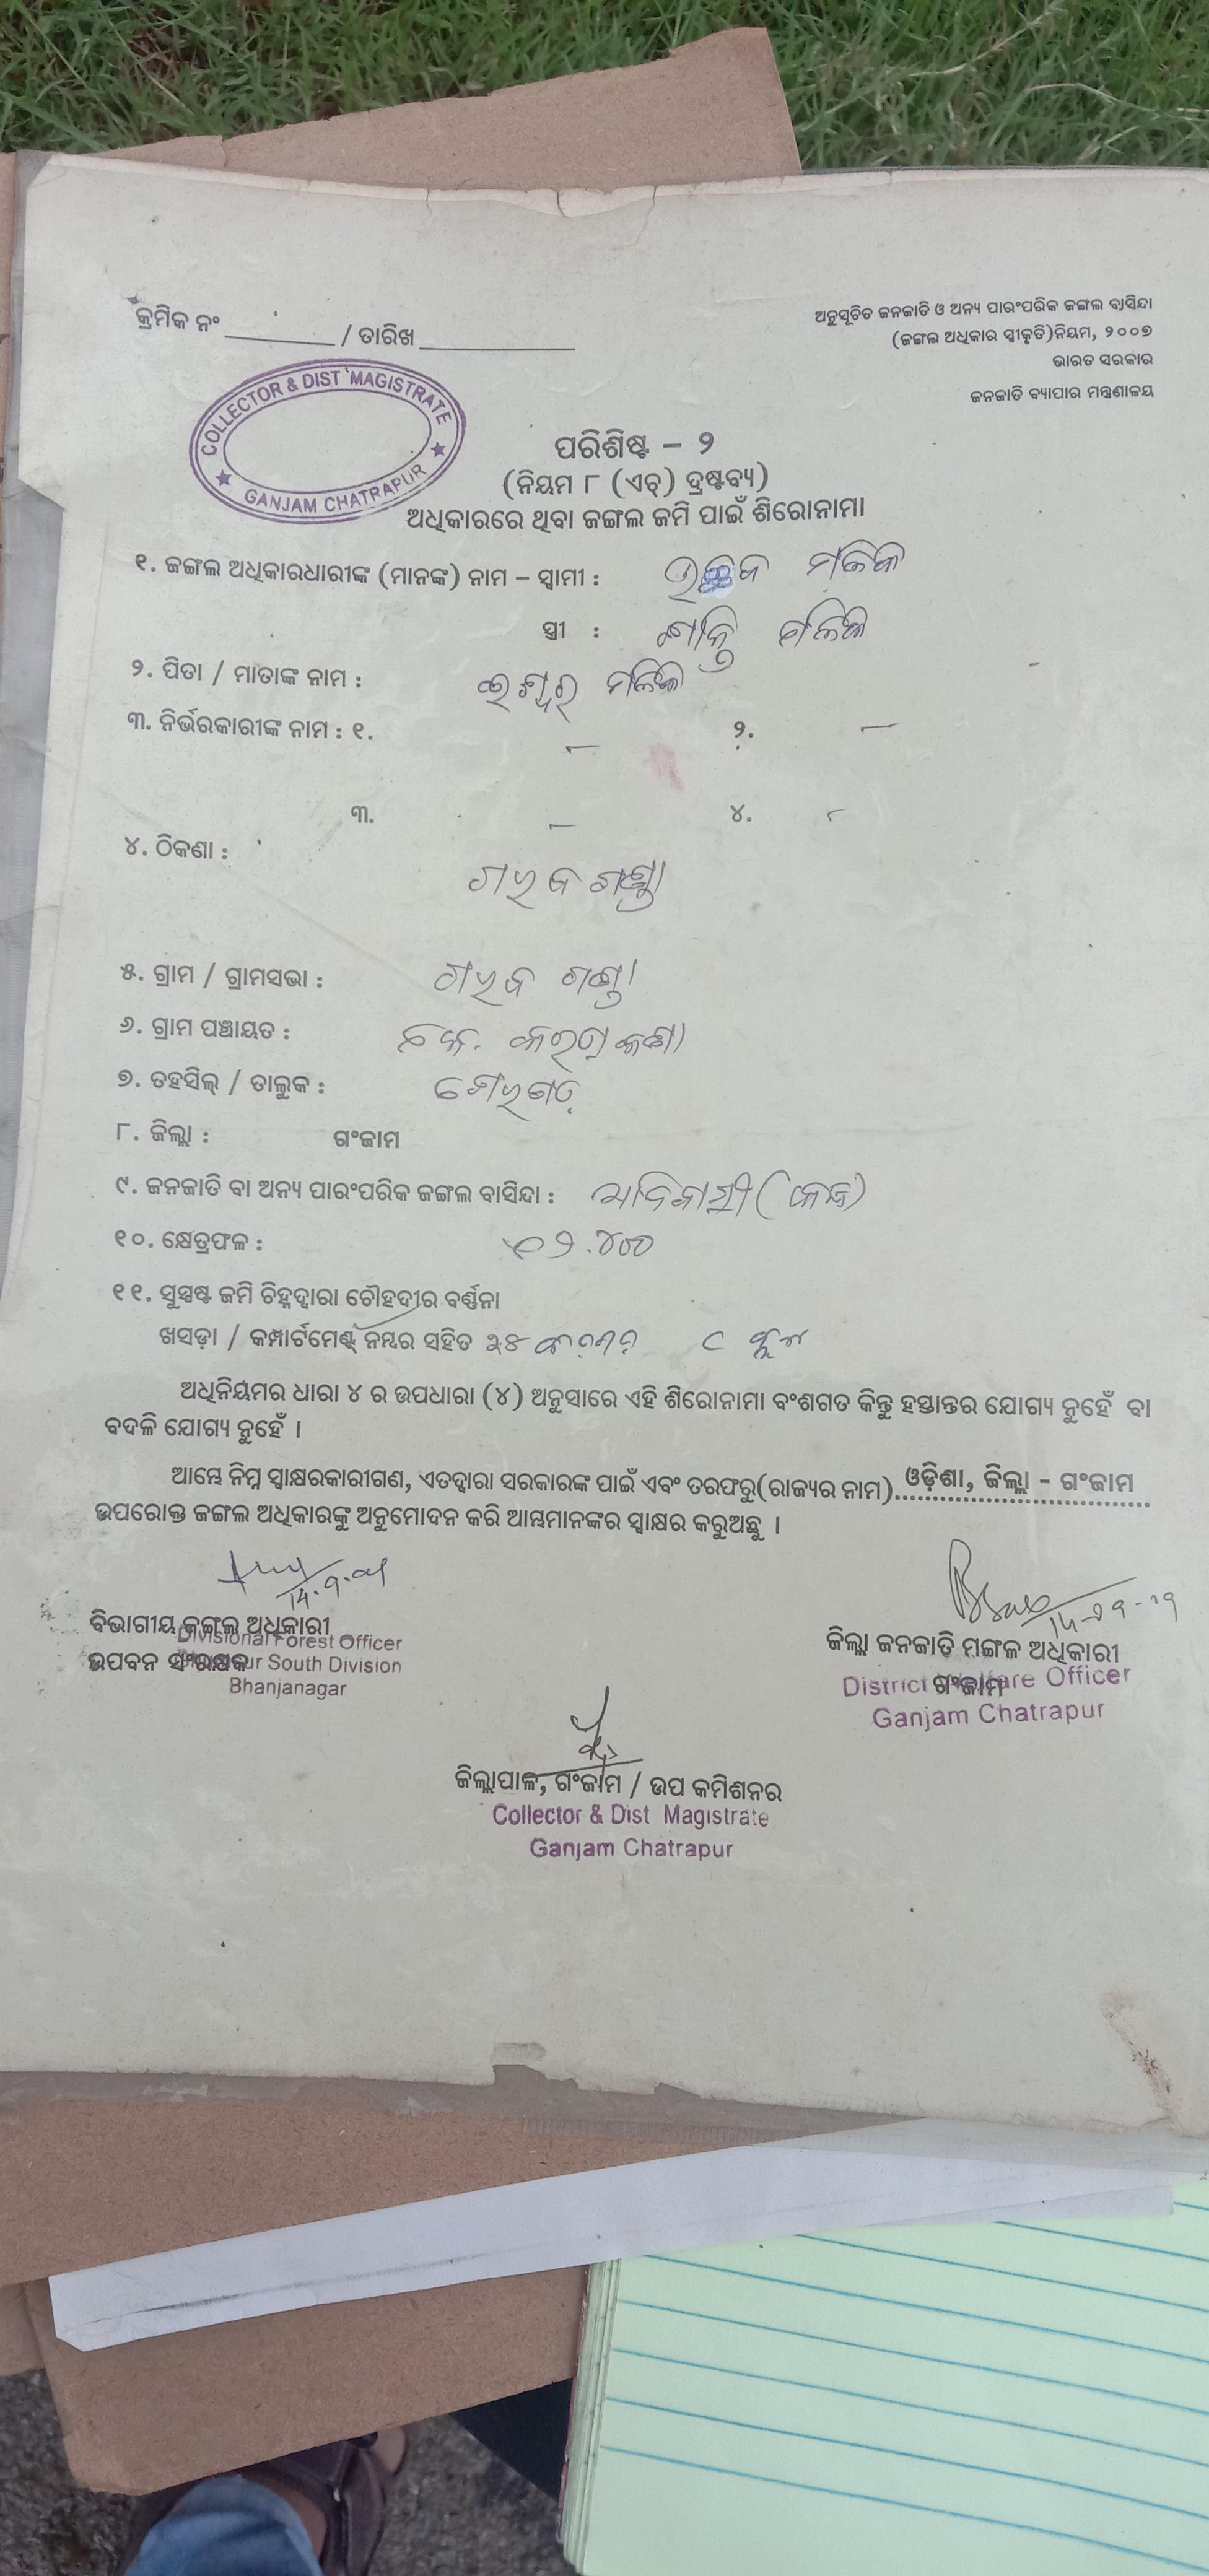 କ୍ରମିକ ନଂ ________ / ତାରିଖ ____________
ଅନୁସୂଚିତ ଜନଜାତି ଓ ଅନ୍ୟ ପାରଂପରିକ ଜଙ୍ଗଲ ବାସିନ୍ଦା
(ଜଙ୍ଗଲ ଅଧିକାର ସ୍ୱୀକୃତି)ନିୟମ, ୨୦୦୭
ଭାରତ ସରକାର
ଜନଜାତି ବ୍ୟାପାର ମନ୍ତ୍ରଣାଳୟ
COLLECTOR & DIST MAGISTRATE
GANJAM CHATRAPUR
ପରିଶିଷ୍ଟ – ୨
(ନିୟମ ୮ (ଏଚ୍) ଦ୍ରଷ୍ଟବ୍ୟ)
ଅଧିକାରରେ ଥିବା ଜଙ୍ଗଲ ଜମି ପାଇଁ ଶିରୋନାମା
୧. ଜଙ୍ଗଲ ଅଧିକାରଧାରୀଙ୍କ (ମାନଙ୍କ) ନାମ – ସ୍ୱାମୀ : ମଳିକ
ସ୍ତ୍ରୀ : ଶାନ୍ତି ମଳିକ
୨. ପିତା / ମାତାଙ୍କ ନାମ : ଈଶ୍ୱର ମଳିକ
୩. ନିର୍ଭରକାରୀଙ୍କ ନାମ : ୧. – ୨. –
୩. – ୪. –
୪. ଠିକଣା :
୫. ଗ୍ରାମ / ଗ୍ରାମସଭା :
୬. ଗ୍ରାମ ପଞ୍ଚାୟତ :
୭. ତହସିଲ୍ / ତାଲୁକ :
୮. ଜିଲ୍ଲା : ଗଂଜାମ
୯. ଜନଜାତି ବା ଅନ୍ୟ ପାରଂପରିକ ଜଙ୍ଗଲ ବାସିନ୍ଦା : ଆଦିବାସୀ (କନ୍ଧ)
୧୦. କ୍ଷେତ୍ରଫଳ :
୧୧. ସୁସ୍ପଷ୍ଟ ଜମି ଚିହ୍ନଦ୍ୱାରା ଚୌହଦୀର ବର୍ଣ୍ଣନା
ଖସଡ଼ା / କମ୍ପାର୍ଟମେଣ୍ଟ୍ ନମ୍ବର ସହିତ
ଅଧିନିୟମର ଧାରା ୪ ର ଉପଧାରା (୪) ଅନୁସାରେ ଏହି ଶିରୋନାମା ବଂଶଗତ କିନ୍ତୁ ହସ୍ତାନ୍ତର ଯୋଗ୍ୟ ନୁହେଁ ବା
ବଦଳି ଯୋଗ୍ୟ ନୁହେଁ ।
ଆମ୍ଭେ ନିମ୍ନ ସ୍ୱାକ୍ଷରକାରୀଗଣ, ଏତଦ୍ୱାରା ସରକାରଙ୍କ ପାଇଁ ଏବଂ ତରଫରୁ(ରାଜ୍ୟର ନାମ) ଓଡ଼ିଶା, ଜିଲ୍ଲା - ଗଂଜାମ
ଉପରୋକ୍ତ ଜଙ୍ଗଲ ଅଧିକାରଙ୍କୁ ଅନୁମୋଦନ କରି ଆମ୍ଭମାନଙ୍କର ସ୍ୱାକ୍ଷର କରୁଅଛୁ ।
ବିଭାଗୀୟ ଜଙ୍ଗଲ ଅଧିକାରୀ
Divisional Forest Officer
ଉପବନ ସଂରକ୍ଷକ
South Division
Bhanjanagar
ଜିଲ୍ଲା ଜନଜାତି ମଙ୍ଗଳ ଅଧିକାରୀ
ଗଂଜାମ
District Welfare Officer
Ganjam Chatrapur
ଜିଲ୍ଲାପାଳ, ଗଂଜାମ / ଉପ କମିଶନର
Collector & Dist Magistrate
Ganjam Chatrapur